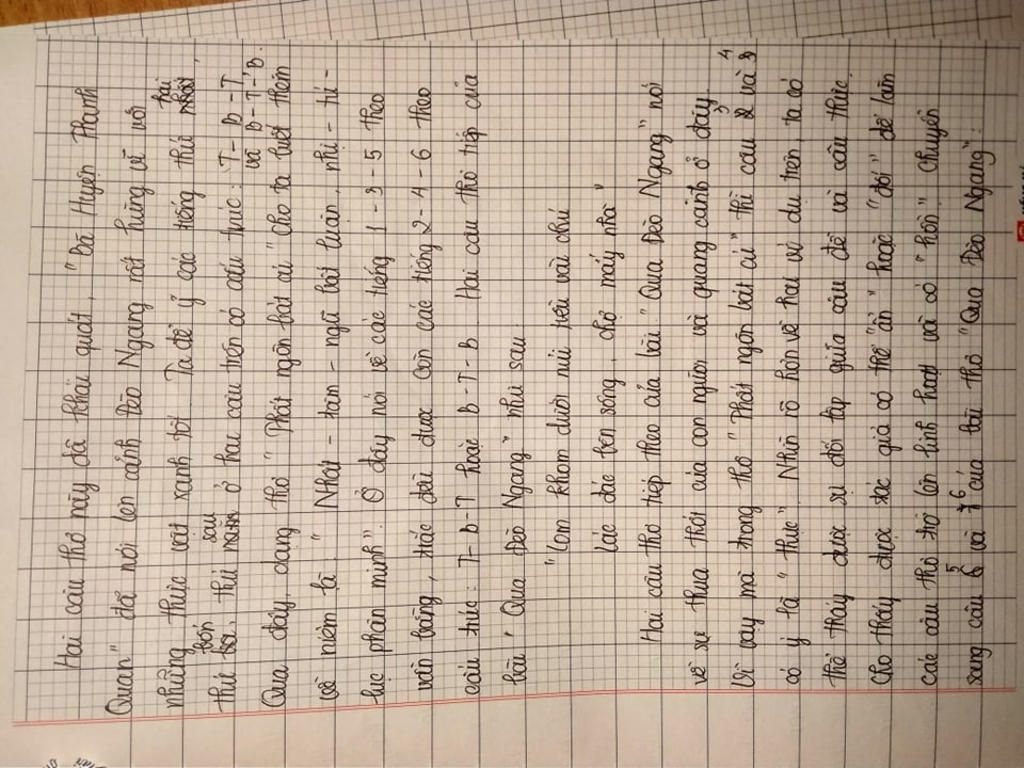 Hai câu thơ này đã khái quát, "Bà Huyện Thanh
Quan" đã nói lên cảnh Đèo Ngang rất hùng vĩ với
những thực vật xanh tốt. Ta để ý các tiếng thứ hai
thứ bốn, thứ sau ở hai câu trên có cấu trúc: T-B-T
và B-T-B.
Qua đây, dạng thơ "Thất ngôn bát cú" cho ta luật thêm
về niêm là: "Nhất - tam - ngũ bất luận, nhị - tứ -
lục phân minh". Ở đây nói về các tiếng 1 - 3 - 5 theo
vần bằng, trắc đều được còn các tiếng 2 - 4 - 6 theo
cấu trúc: T-B-T hoặc B-T-B. Hai câu thơ tiếp của
bài "Qua Đèo Ngang" như sau:
"Lom khom dưới núi tiều vài chú
Lác đác bên sông, chợ mấy nhà"
Hai câu thơ tiếp theo của bài "Qua Đèo Ngang" nói
về sự thưa thớt của con người và quang cảnh ở đây.
Vì vậy mà trong thơ "Thất ngôn bát cú" thì câu 3 và 4
có ý tả "thực". Nhìn rõ hơn về hai ví dụ trên, ta có
thể thấy được sự đối lập giữa câu đề và câu thực.
Cho thấy được tác giả có thể "ẩn" hoặc "đối" để làm
các câu thơ trở lên linh hoạt và có "hồn". Chuyển
sang câu 5 và 6 của bài thơ "Qua Đèo Ngang":